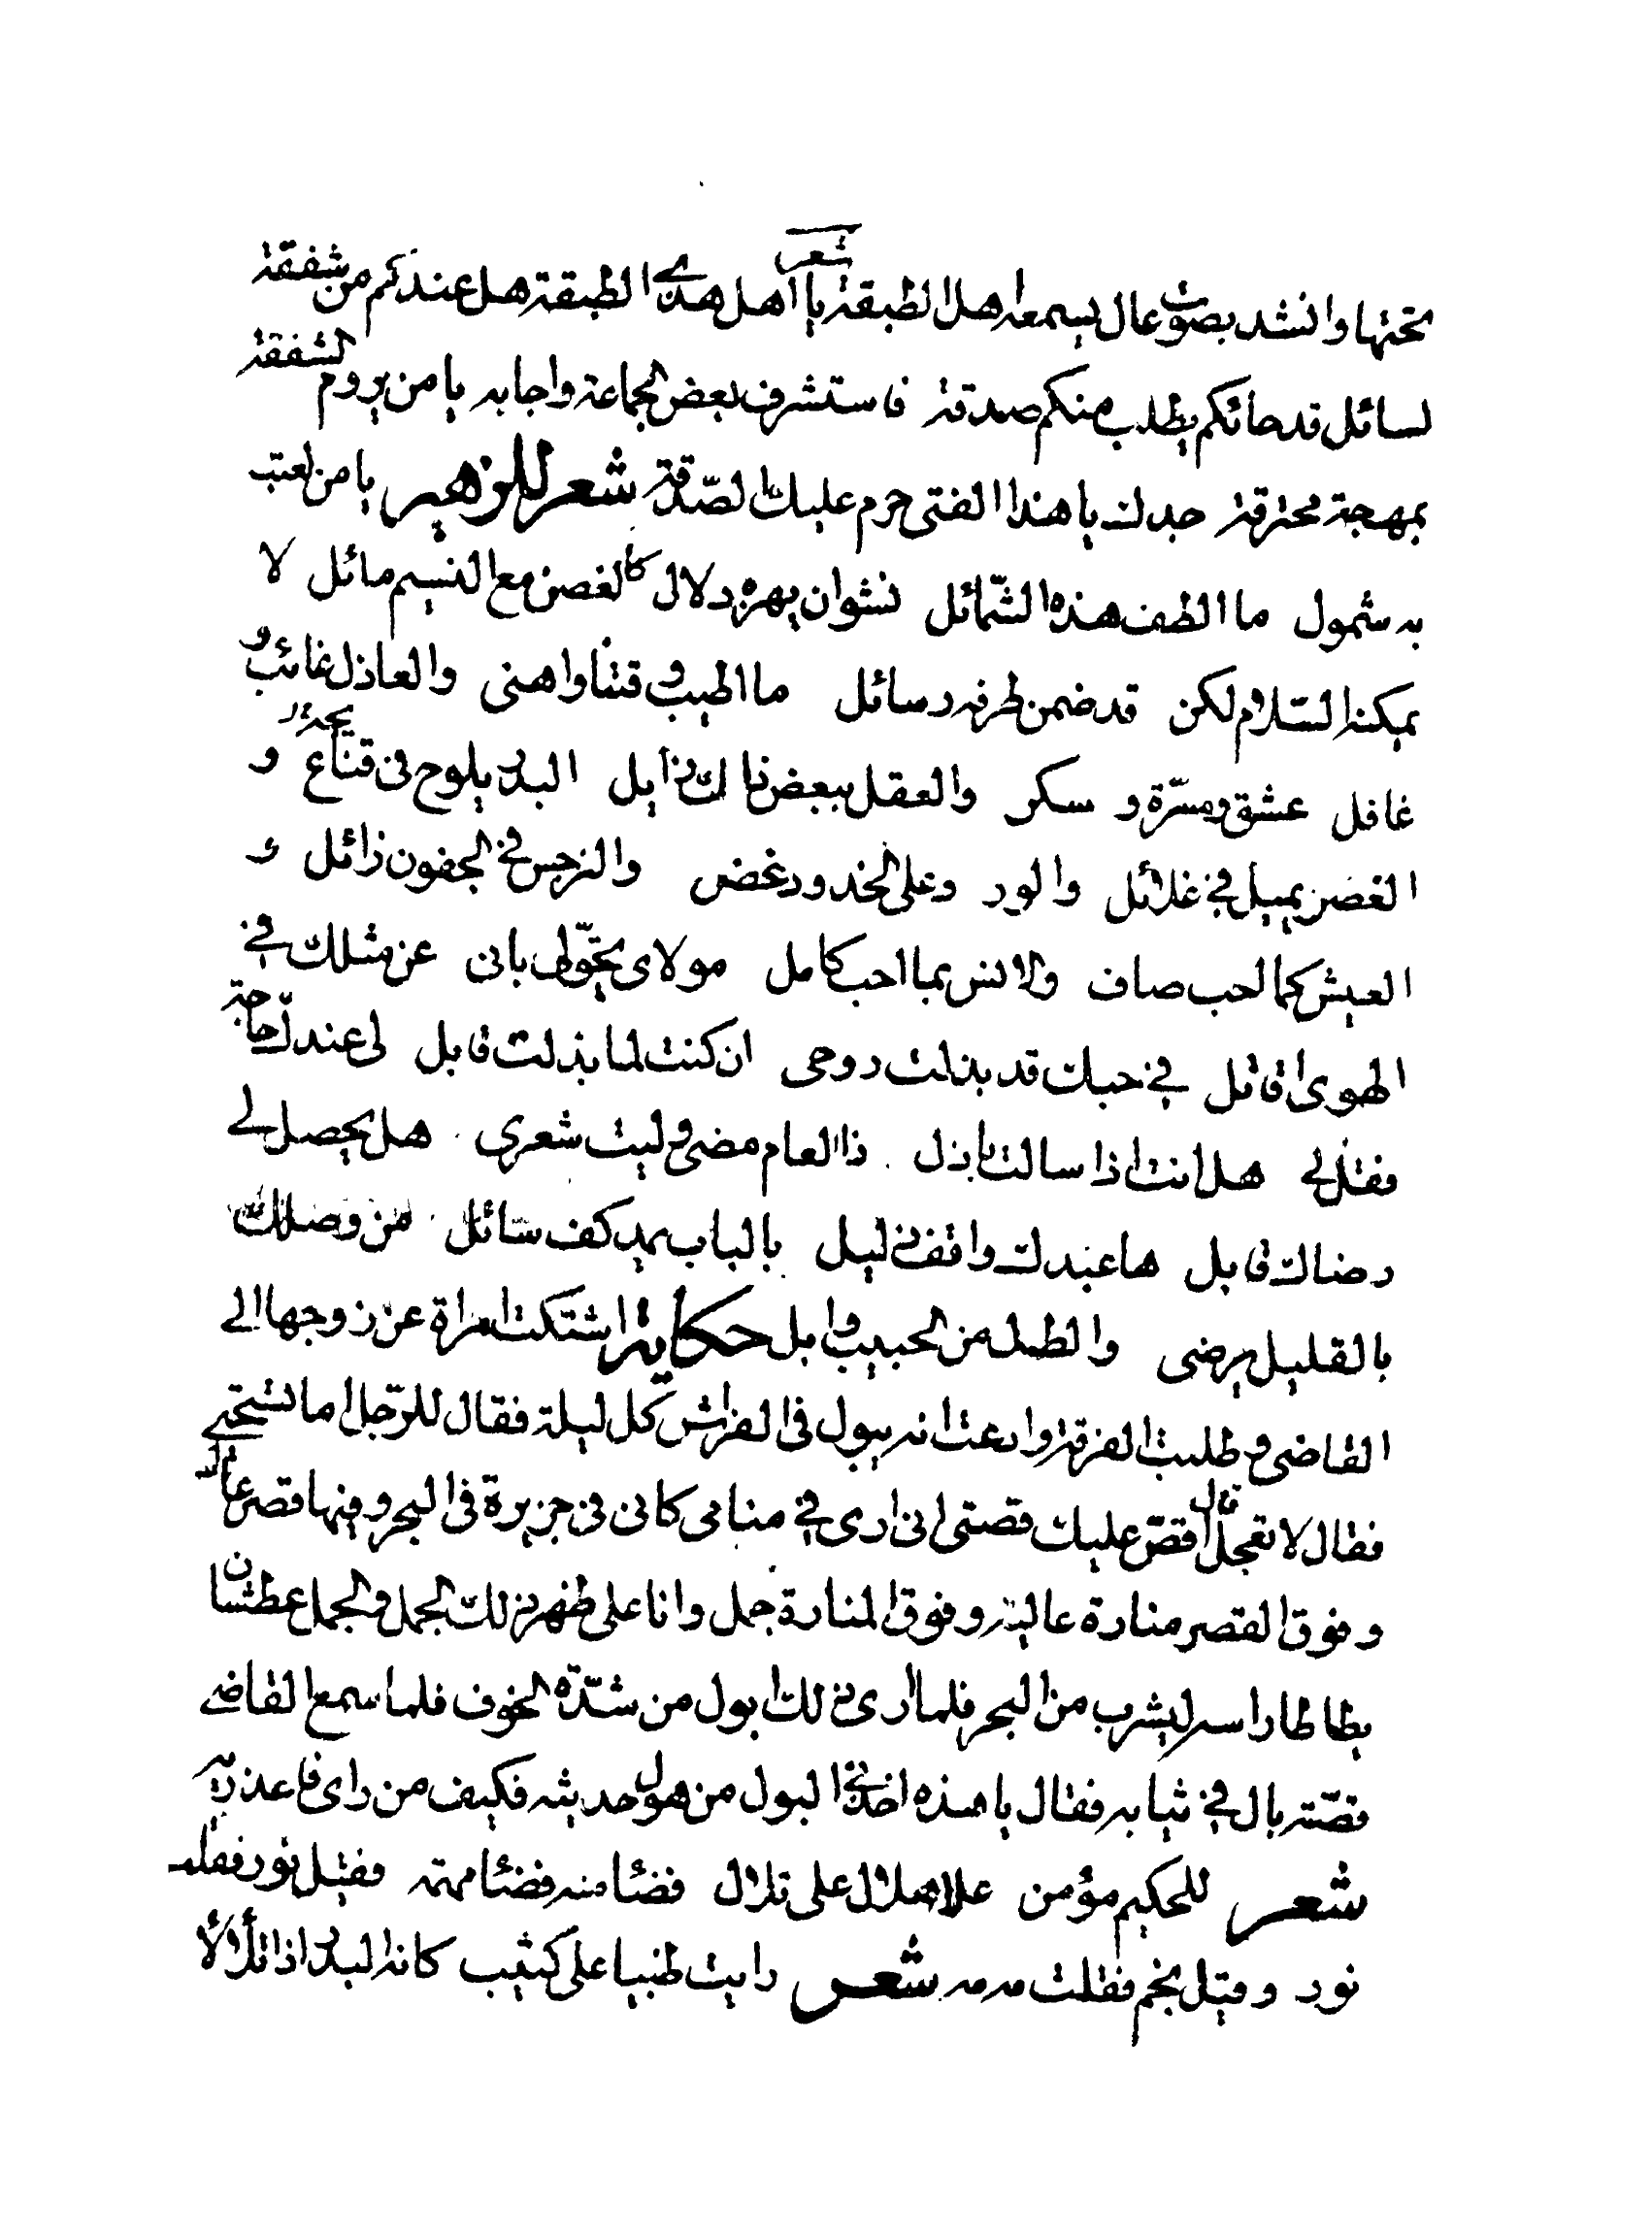 تحتها وانشد بصوت عال يسمعه اهل الطبقة شعر يا اهل هذي الطبقة هل عندكم من شفقة
لسائل قد جائكم يطلب منكم صدقة فاستشرف بعض الجماعة واجابه يا من يروم الشفقة
بمهجة محترقة جدك يا هذا الفتى حرم عليك الصّدقة شعر للزهير يا من لعبت
به شمول ما الطف هذه الشّمائل نشوان يهزه دلال كالغصن مع النسيم مائل لا
يمكنه السّلام لكن قد ضمن طرفه رسائل ما اطيب وقتنا واهنى والعاذل غائب و
غافل عشق ومسرّة و سكر والعقل ببعض ذاك ذايل البدر يلوح في قناع و
الغصن يميل في غلائل والورد وعلى الخدود غض والنرجس في الجفون ذائل و
العيش كما احب صاف والانس بما احب كامل مولاى يحقّ لى بانى عن مثلك في
الهوى اقاتل في حبك قد بذلت روحى ان كنت لما بذلت قابل لى عندك حاجة
فقل لي هل انت اذا سالت باذل ذا العام مضى و ليت شعري هل يحصل لي
رضاك قابل ها عبدك واقف ذليل بالباب يمد كف سائل من وصلك
بالقليل يرضى والطل من الحبيب وابل حكاية اشتكت امراة عن زوجها الى
القاضي و طلبت الفرقة وادعت انه يبول في الفراش كل ليلة فقال للرّجل اما تستحي
فقال لا تعجل قال اقصّ عليك قصتى انى ارى في منامى كانى في جزيرة في البحر و فيها قصر عال
و فوق القصر منارة عالية و فوق المنارة جمل وانا على ظهر ذلك الجمل و الجمل عطشان
يطاطا راسه ليشرب من البحر فلما ارى ذلك ابول من شدّة الخوف فلما سمع القاضي
قصّته بال في ثيابه فقال يا هذه اخذنى البول من هول حديثه فكيف من راى فاعذريه
شعر للحكيم مؤمن علا هلال على تلال فضئا منه فضئا مهمة فقيل نور فقلت
نور و قيل نجم فقلت مه مه شعر رايت ظبيا على كثيب كانه البدر اذا تلألأ